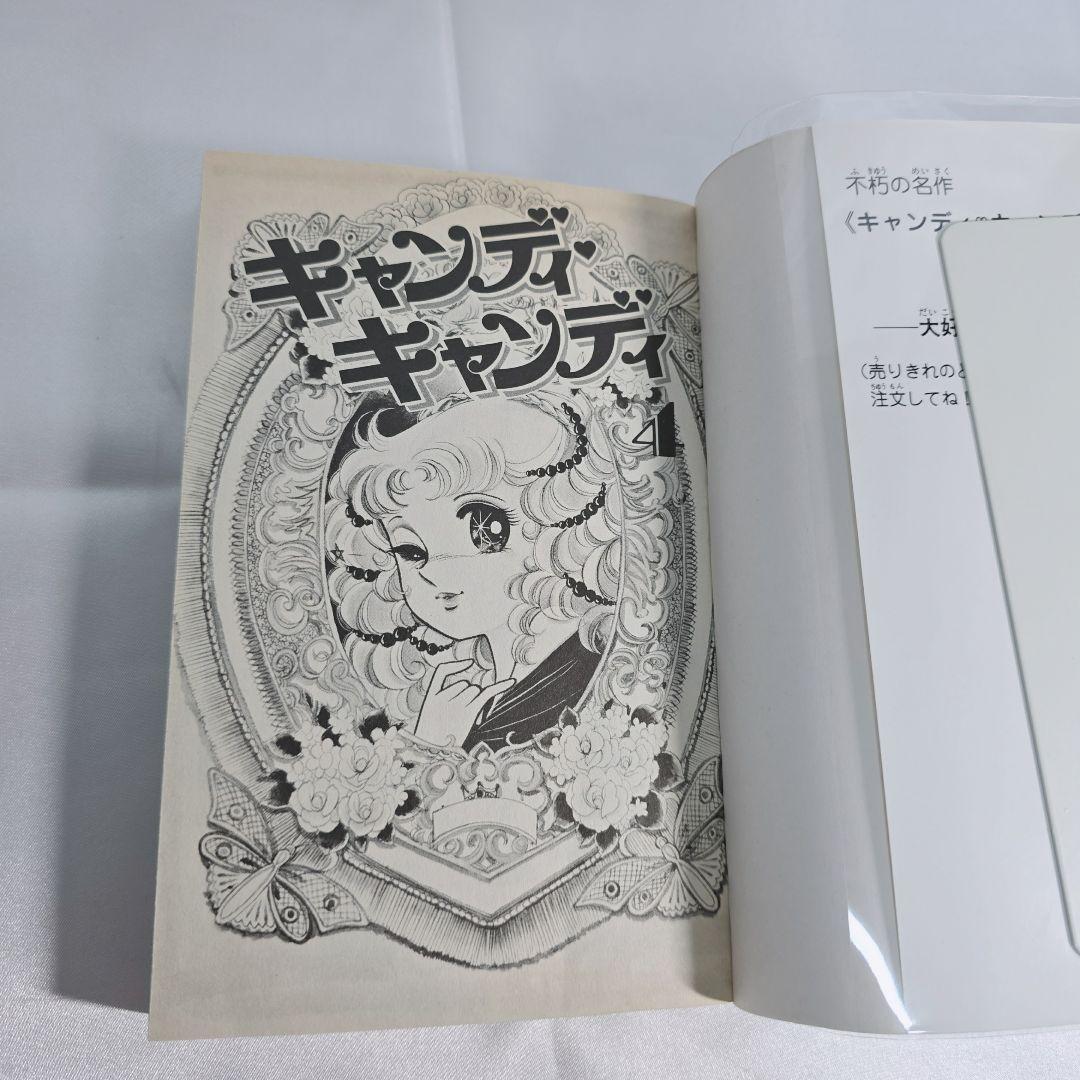 キャンディ♥
キャンディ
4
不朽の名作
《キャンディ♡キャンデ
――大好
(売りきれのと
注文してね!